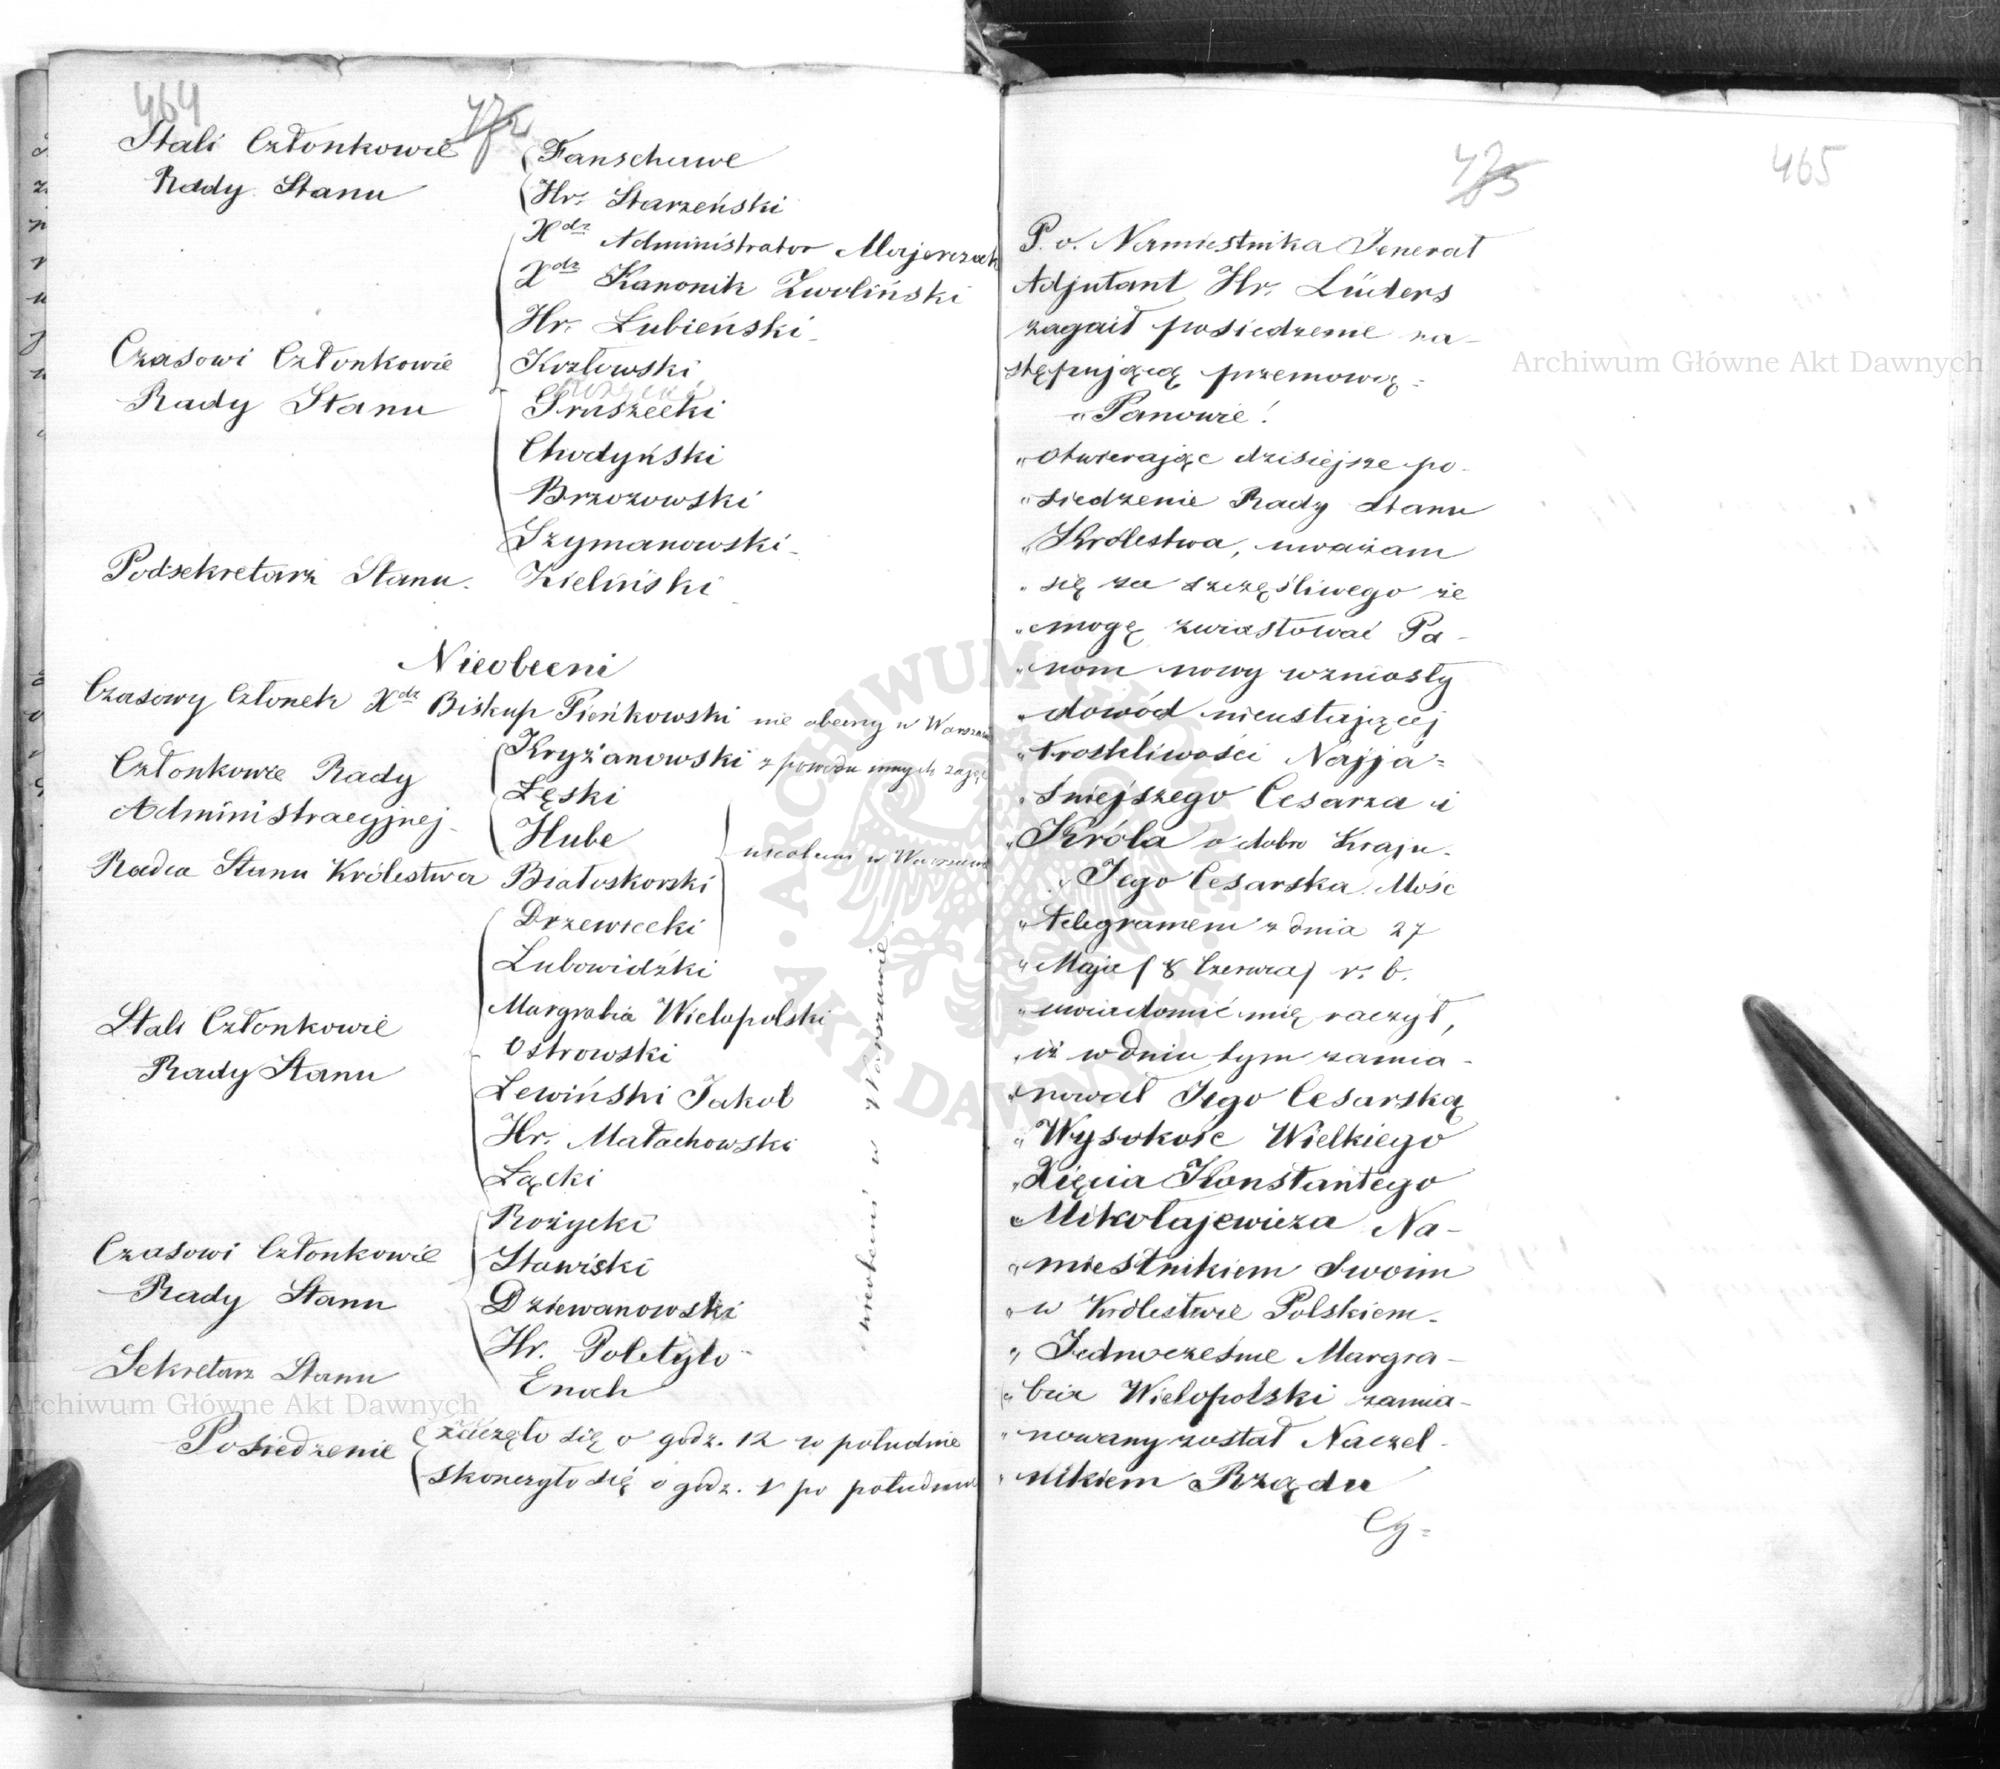 464
472
Stali Członkowie
Rady Stanu
Fanschawe
Hr. Starzeński
Czasowi Członkowie
Rady Stanu
Xdz Administrator Majerczak
Xdz Kanonik Zwoliński
Hr. Łubieński
Kozłowski
Gruszecki
Chodyński
Brzozowski
Szymanowski
Podsekretarz Stanu. Zieliński
Nieobecni
Czasowy Członek Xdz Biskup Pieńkowski nie obecny w Warszawie
Członkowie Rady
Administracyjnej
Kryżanowski z powodu innych zajęć
Łęski
Hube
Radca Stanu Królestwa Białoskorski
nieobecni w Warszawie
Stali Członkowie
Rady Stanu
Drzewiecki
Lubowidzki
Margrabia Wielopolski
Ostrowski
Lewiński Jakob
Hr. Małachowski
Łącki
Czasowi Członkowie
Rady Stanu
Rożycki
Stawiski
Dziewanowski
Hr. Poletyło
Sekretarz Stanu
Enoch
nieobecni w Warszawie
Posiedzenie
zaczęło się o godz. 12 w południe
skończyło się o godz. 1 po południu
473
465
P. o. Namiestnika Jenerał
Adjutant Hr. Lüders
zagaił posiedzenie na-
stępującą przemową:
„Panowie!
„Otwierając dzisiejsze po-
„siedzenie Rady Stanu
„Królestwa, uważam
„się za szczęśliwego że
„mogę zwiastować Pa-
„nom nowy wzniosły
„dowód nieustającej
„troskliwości Najja=
„śniejszego Cesarza i
„Króla o dobro Kraju.
„Jego Cesarska Mość
„telegramem z dnia 27
„Maja (8 Czerwca) r. b.
„uwiadomić mię raczył,
„iż w dniu tym zamia-
„nował Jego Cesarską
„Wysokość Wielkiego
„Xięcia Konstantego
„Mikołajewicza Na-
„miestnikiem Swoim
„w Królestwie Polskiem.
„Jednocześnie Margra-
„bia Wielopolski zamia-
„nowany został Naczel-
„nikiem Rządu
Cy=
Archiwum Główne Akt Dawnych
Archiwum Główne Akt Dawnych
ARCHIWUM GŁÓWNE AKT DAWNYCH